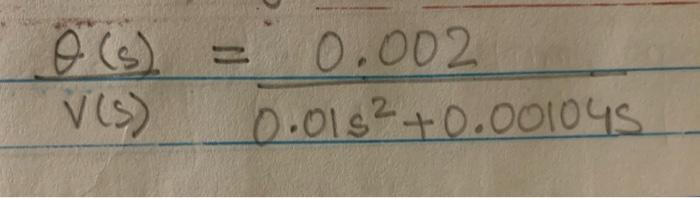 θ(s) = 0.002
V(s) 0.01s² + 0.00104s